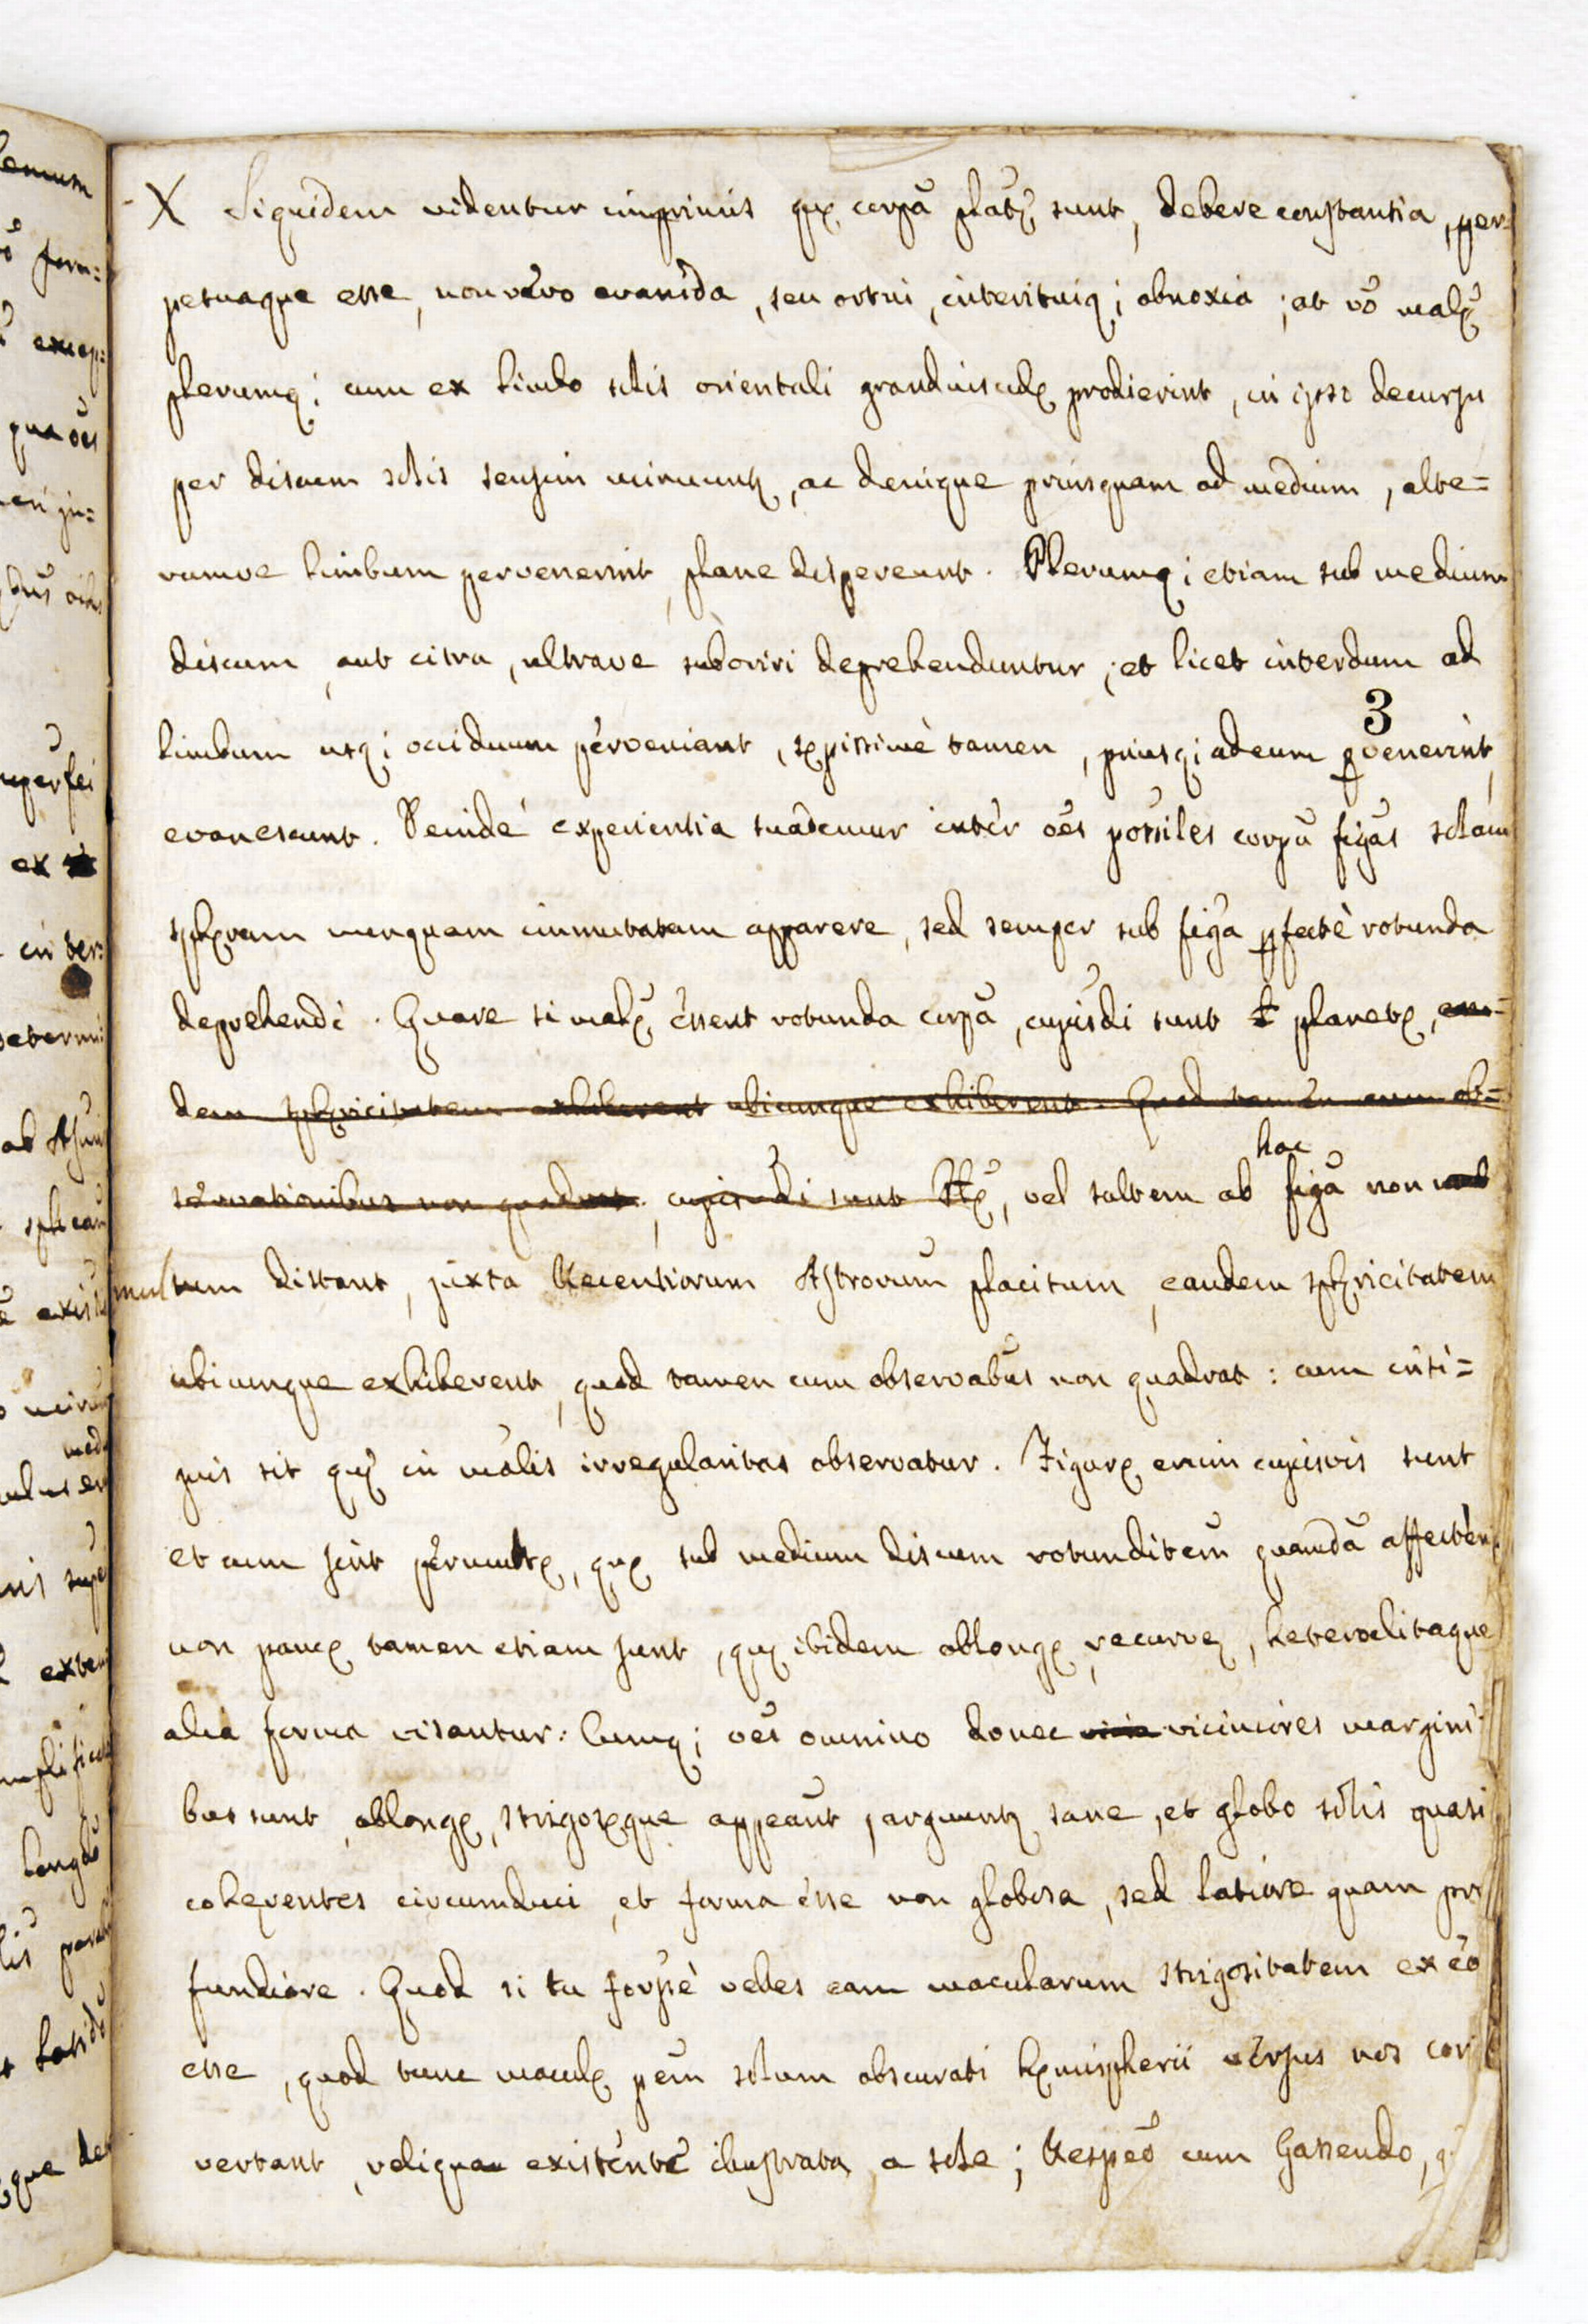 X Siquidem videntur inprimis quę corpā platę̄ sunt, debere constantia, per=
petuaque esse, non vero evanida, seu ortui, interituiq; obnoxia; at vō malę̄
plerumq; cum ex limbo solis orientali grandiusculę prodierint, in ipso decursu
per discum solis sensim minuunt, ac denique priusquam ad medium, alte=
rumve limbum pervenerint, plane dispereunt. Plerumq; etiam sub medium
discum, aut citra, ultrave suboriri deprehenduntur; et licet interdum ad
3
limbum usq; occiduum perveniant, sępissimè tamen, priusq; ad eum pvenerint,
evanescunt. Deinde experientia suademur inter oēs possiles corpū figās solam
sphęram nunquam immutatam apparere, sed semper sub figā pfectè rotunda
deprehendi. Quare si malę̄ essent rotunda corpā, cujusdi sunt planetę, ean=
dem sphęricitatem exhiberent ubicunque exhiberent. Quod tamen cum ob=
hac
servationibus non quadrat, cujusdi sunt Stę̄, vel saltem ab figā non
multum distant, juxta Recentiorum Astrorum̄ placitum, eandem sphęricitatem
ubicunque exhiberent, quod tamen cum observabūs non quadrat: cum insi=
gnis sit quę in mālis irregularitas observatur. Figurę enim cujusvis sunt
et cum sint permultę, quę sub medium discum rotunditem̄ quamdā affectent
non paucę tamen etiam sunt, quę ibidem oblongę, recurvę, heteroclitaque
alia forma visantur: Cumq; oēs omnino donec viciniores margini
bus sunt, oblongę, strigosęque appeānt, arguunt sane, et globo solis quasi
cohęrentes circumduci, et forma esse non globosa, sed latiore quam pro
fundiore. Quod si tu forsè veles eam macularum strigositatem ex eo
esse, quod tunc maculę pem̄ solum obscurati hęmispherii versus nos con
vertant, reliqua existente illustrata a sole; Respeō cum Gassendo,